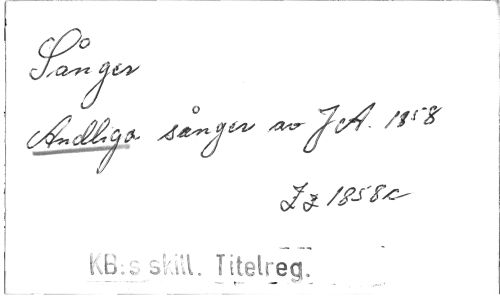 Sånger
Andliga sånger av J A. 1858
Zz 1858c
KB:s skill. Titelreg.